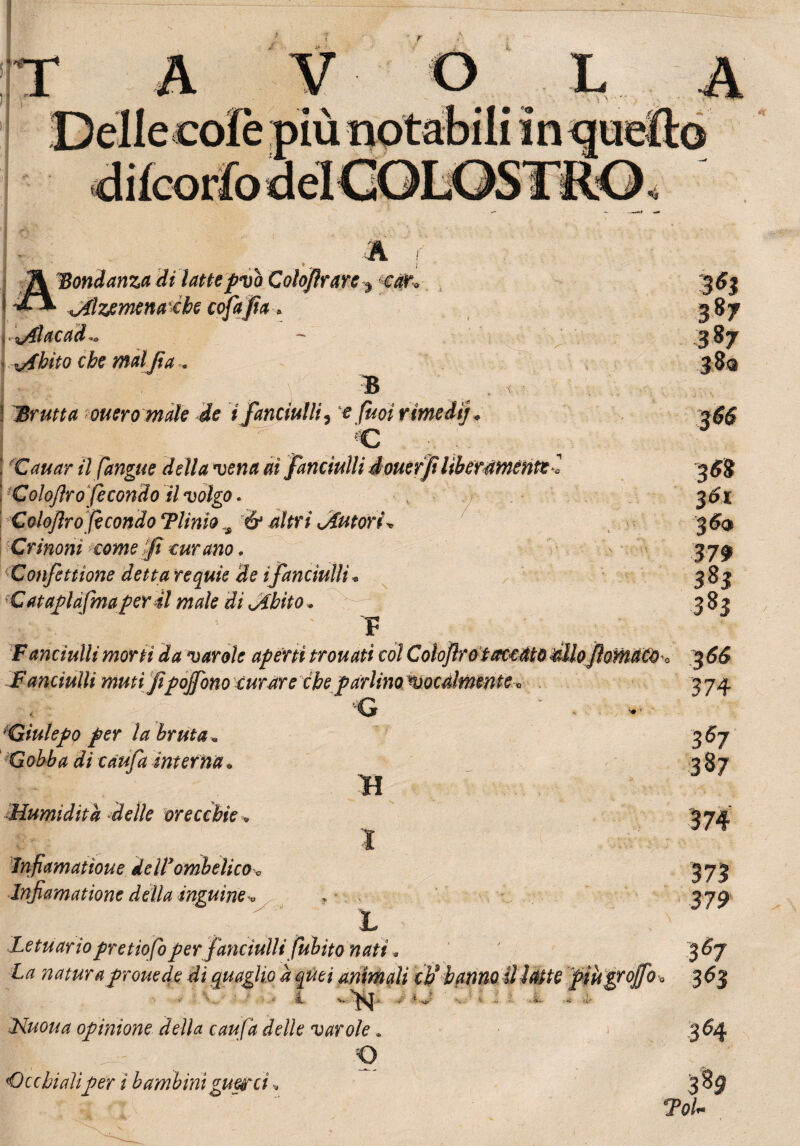 TAVOLA
Delle cose più notabili in questo
discorso del COLOSTRO.
A
ABondanza di latte può Colostrare, car. 363
Alzemena che cosa sia. 387
Alacad. 387
Abito che mal sia. 380
B
Brutta ouero male de i fanciulli, e suoi rimedij. 366
C
Cauar il sangue della vena ai fanciulli douersi liberamente. 368
Colostro secondo il volgo. 361
Colostro secondo Plinio, & altri Autori. 360
Crinoni come si curano. 379
Confettione detta requie de i fanciulli. 383
Cataplasma per il male di Abito. 383
F
Fanciulli morti da varole aperti trouati col Colostro taccato allo stomaco. 366
Fanciulli muti si possono curare che parlino vocalmente. 374
G
Giulepo per la bruta. 367
Gobba di causa interna. 387
H
Humidità delle orecchie. 374
I
Infiamatioue dell'ombelico. 373
Infiamatione della inguine. 379
L
Letuario pretioso per fanciulli subito nati. 367
La natura prouede di quaglio a quei animali ch' hanno il latte più grosso. 363
N
Nuoua opinione della causa delle varole. 364
O
Occhiali per i bambini guerci. 389
Pol-